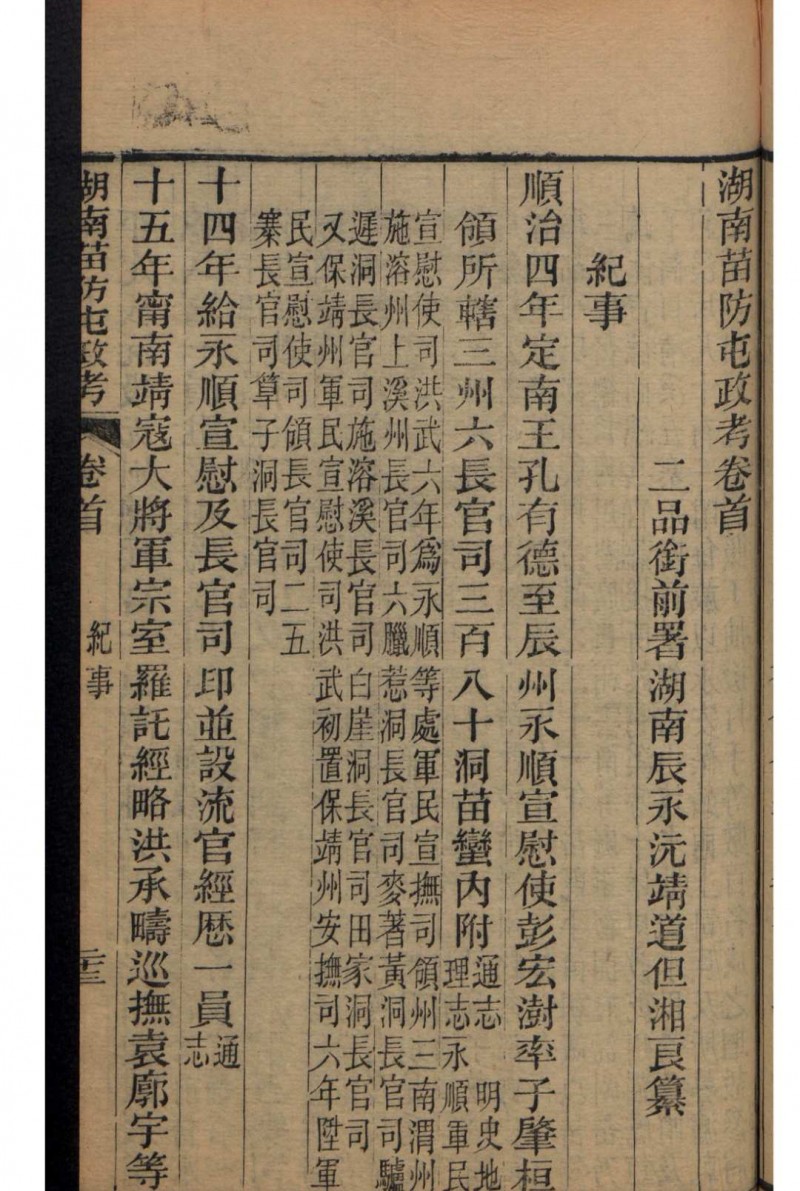 湖南苗防屯政考卷首
二品銜前署湖南辰永沅靖道但湘良纂
紀事
順治四年定南王孔有德至辰州永順宣慰使彭宏澍率子肇桓
領所轄三州六長官司三百八十洞苗蠻內附
通志 明史地
理志永順軍民
宣慰使司洪武六年爲永順等處軍民宣撫司領州三南渭州
施溶州上溪州長官司六臘惹洞長官司麥著黃洞長官司驢
遲洞長官司施溶溪長官司白崖洞長官司田家洞長官司
又保靖州軍民宣慰使司洪武初置保靖州安撫司六年陞軍
民宣慰使司領長官司二五
寨長官司筸子洞長官司
十四年給永順宣慰及長官司印並設流官經歷一員
通
志
十五年甯南靖寇大將軍宗室羅託經略洪承疇巡撫袁廓宇等
湖南苗防屯政考 卷首 紀事